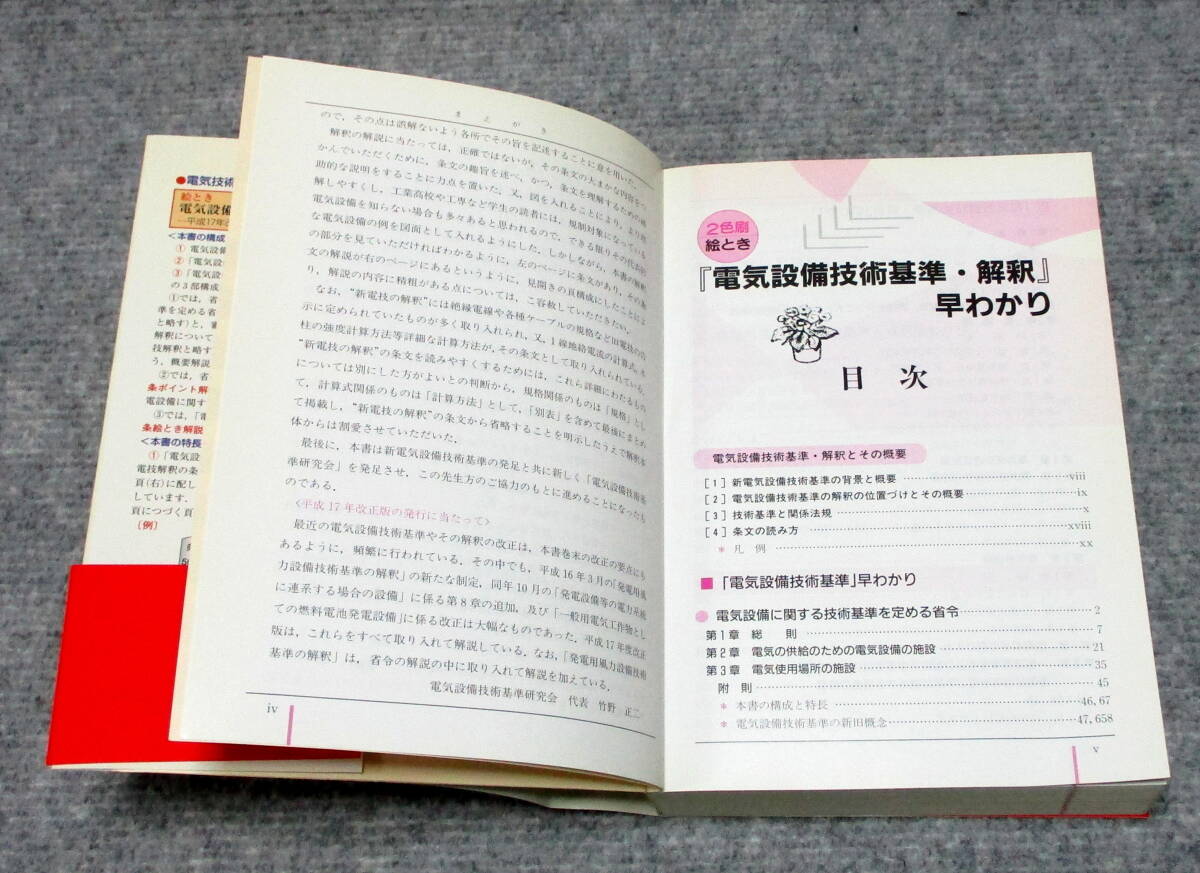 ●電気技術
絵とき
電気設備
―平成17年
<本書の構成
① 電気設備
② 「電気設
③ 「電気設
の3部構成
①では，省
準を定める省
と略す)と，審
解釈について
技解釈と略す
う．概要解説
②では，省
条ポイント解
電設備に関す
③では，「電
条絵とき解説
<本書の特長
①「電気設
電技解釈の条
頁(右)に配し
しています．
頁につづく頁
〔例〕
まえがき
ので，その点は誤解ないよう各所でその旨を記述することに意を用いた．
解釈の解説に当たっては，正確ではないが，その条文の大まかな内容をつ
かんでいただくために，条文の趣旨を述べ，かつ，条文を理解するための補
助的な説明をすることに力点を置いた．又，図を入れることにより，より理
解しやすくし，工業高校や工専など学生の読者には，規制対象になっている
電気設備を知らない場合も多々あると思われるので，できる限りその代表的
な電気設備の例を図面として入れるようにした．しかしながら，本書の解釈
の部分を見ていただければわかるように，左のページに条文があり，その条
文の解説が右のページにあるというように，見開きの頁構成にしたことによ
り，解説の内容に精粗がある点については，ご容赦していただきたい．
なお，“新電技の解釈”には絶縁電線や各種ケーブルの規格など旧電技の告
示に定められていたものが多く取り入れられ，又，1線地絡電流の計算式，支
柱の強度計算方法等詳細な計算方法が，その条文として取り入れられている．
“新電技の解釈”の条文を読みやすくするためには，これら詳細にわたるもの
については別にした方がよいとの判断から，規格関係のものは「規格」とし
て，計算式関係のものは「計算方法」として，「別表」を含めて最後にまとめ
て掲載し，“新電技の解釈”の条文から省略することを明示したうえで解釈本
体からは割愛させていただいた．
最後に，本書は新電気設備技術基準の発足と共に新しく「電気設備技術基
準研究会」を発足させ，この先生方のご協力のもとに進めることになったも
のである．
〈平成17年改正版の発行に当たって〉
最近の電気設備技術基準やその解釈の改正は，本書巻末の改正の要点にも
あるように，頻繁に行われている．その中でも，平成16年3月の「発電用風
力設備技術基準の解釈」の新たな制定，同年10月の「発電設備等の電力系統
に連系する場合の設備」に係る第8章の追加，及び「一般用電気工作物とし
ての燃料電池発電設備」に係る改正は大幅なものであった．平成17年度改正
版は，これらをすべて取り入れて解説している．なお，「発電用風力設備技術
基準の解釈」は，省令の解説の中に取り入れて解説を加えている．
電気設備技術基準研究会 代表 竹野 正二
iv
2色刷
絵とき
『電気設備技術基準・解釈』
早わかり
目 次
電気設備技術基準・解釈とその概要
［1］新電気設備技術基準の背景と概要 ……viii
［2］電気設備技術基準の解釈の位置づけとその概要……ix
［3］技術基準と関係法規……x
［4］条文の読み方 ……xviii
＊ 凡 例 ……xx
■「電気設備技術基準」早わかり
● 電気設備に関する技術基準を定める省令……2
第1章 総 則 ……7
第2章 電気の供給のための電気設備の施設 ……21
第3章 電気使用場所の施設 ……35
附 則……45
＊ 本書の構成と特長 ……46,67
＊ 電気設備技術基準の新旧概念……47,658
v